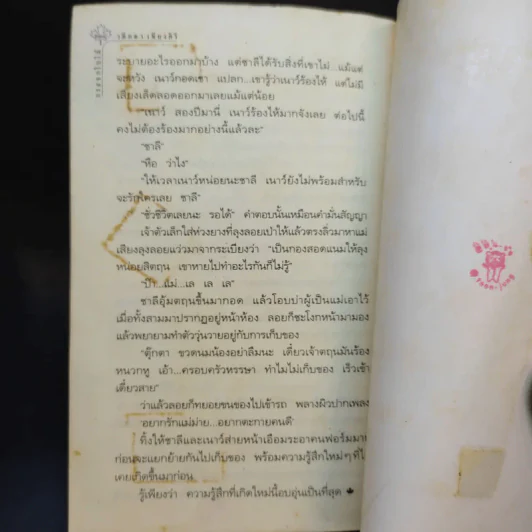 ระบายอะไรออกมาบ้าง แต่ชาลีได้รับสิ่งที่เขาไม่...แม้แต่
จะหวัง เนาว์กอดเขา แปลก...เขารู้ว่าเนาว์ร้องไห้ แต่ไม่มี
เสียงเล็ดลอดออกมาเลยแม้แต่น้อย
"เนาว์ สองปีมานี่ เนาว์ร้องไห้มากจังเลย ต่อไปนี้
คงไม่ต้องร้องมากอย่างนี้แล้วละ"
"ชาลี"
"หือ ว่าไง"
"ให้เวลาเนาว์หน่อยนะชาลี เนาว์ยังไม่พร้อมสำหรับ
จะรักใครเลย ชาลี"
"ชั่วชีวิตเลยนะ รอได้" คำตอบนั้นเหมือนคำมั่นสัญญา
เจ้าตัวเล็กใส่ห่วงยางที่ลุงลอยเป่าให้แล้วตรงลิ่วมาหาแม่
เสียงลุงลอยแว่วมาจากระเบียงว่า "เป็นกองสอดแนมให้ลุง
หน่อยสิตฤน เขาหายไปทำอะไรกันก็ไม่รู้"
"ป้า...แม่...เล เล เล"
ชาลีอุ้มตฤนขึ้นมากอด แล้วโอบบ่าผู้เป็นแม่เอาไว้
เมื่อทั้งสามมาปรากฏอยู่หน้าห้อง ลอยก็ชะโงกหน้ามามอง
แล้วพยายามทำตัววุ่นวายอยู่กับการเก็บของ
"ตุ๊กตา ขวดนมน้องอย่าลืมนะ เดี๋ยวเจ้าตฤนมันร้อง
หนวกหู เอ้า...ครอบครัวหรรษา ทำไมไม่เก็บของ เร็วเข้า
เดี๋ยวสาย"
ว่าแล้วลอยก็ทยอยขนของไปเข้ารถ พลางผิวปากเพลง
"อยากรักแม่ม่าย...อยากตะกายคนดี"
ทิ้งให้ชาลีและเนาว์สายหน้าเอือมระอาคนฟอร์มมาก
ก่อนจะแยกย้ายกันไปเก็บของ พร้อมความรู้สึกใหม่ๆ ที่ไ
เคยเกิดขึ้นมาก่อน
รู้เพียงว่า ความรู้สึกที่เกิดใหม่นี้อบอุ่นเป็นที่สุด